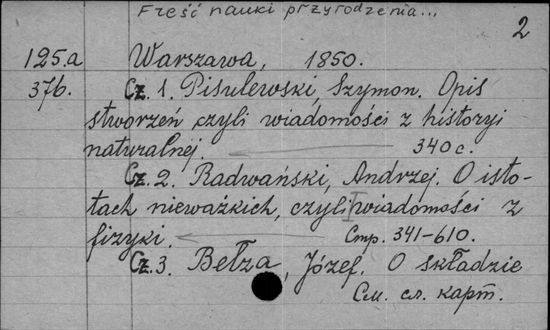 Treść nauki przyrodzenia...
2
125.a Warszawa, 1850.
376. Cz. 1. Pisulewski, Szymon. Opis
stworzeń czyli wiadomości z historyi
naturalnéj. 340 c.
Cz. 2. Radwański, Andrzej. O isto-
tach nieważkich, czyli wiadomości z
fizyki. Стр. 341-610.
Cz. 3. Bełza, Józef. O składzie
См. сл. карт.